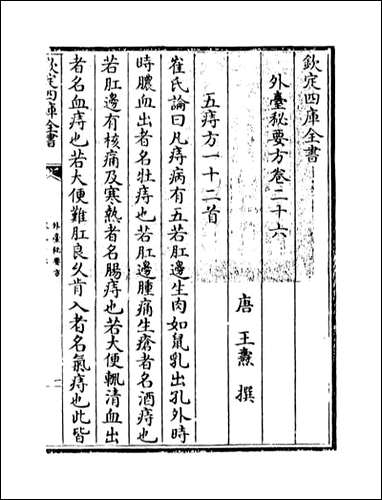 欽定四庫全書
外臺秘要方卷二十六
唐 王燾 撰
五痔方一十二首
崔氏論曰凡痔病有五若肛邊生肉如鼠乳出孔外時
時膿血出者名牡痔也若肛邊腫痛生瘡者名酒痔也
若肛邊有核痛及寒熱者名腸痔也若大便輒清血出
者名血痔也若大便難肛良久肯入者名氣痔也此皆
欽定四庫全書
外臺秘要方
一